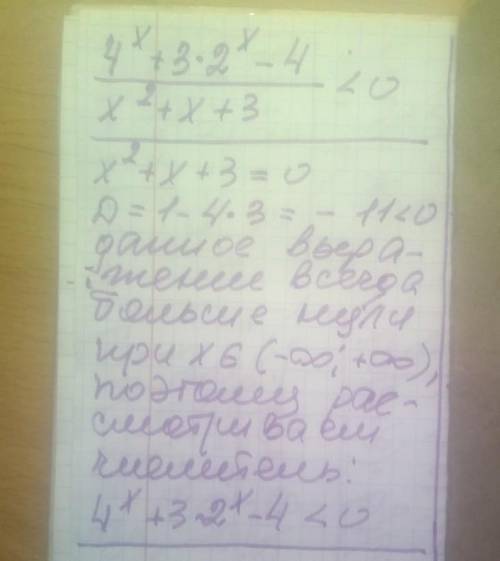 4^x + 3·2^x - 4
x² + x + 3
< 0
x² + x + 3 = 0
D = 1 - 4·3 = - 11 < 0
данное выра-
жение всегда
больше нуля
при x ∈ (-∞; +∞),
поэтому рас-
сматриваем
числитель:
4^x + 3·2^x - 4 < 0